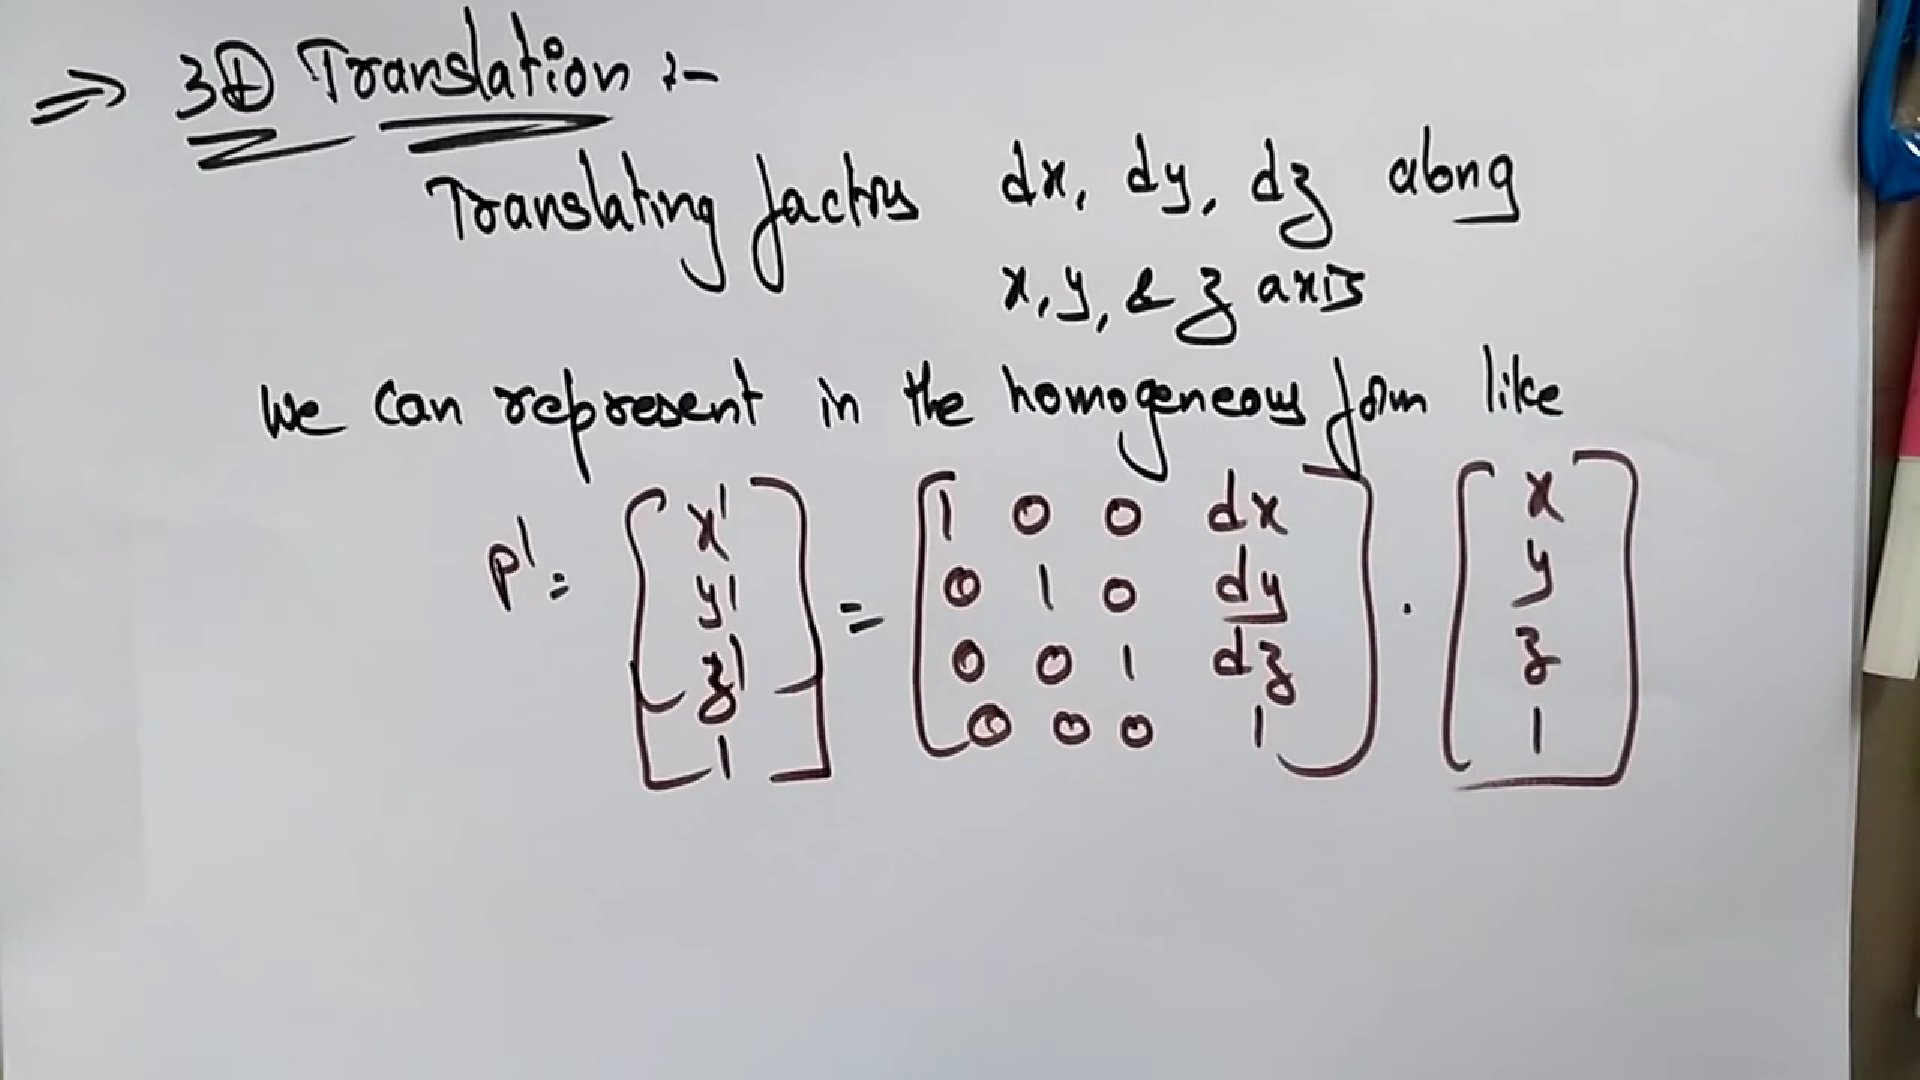 ⇒ 3D Translation :-
Translating factors dx, dy, dz along
x, y, & z axis
We can represent in the homogeneous form like
P' = [x' y' z' 1] = [1 0 0 dx
0 1 0 dy
0 0 1 dz
0 0 0 1] . [x y z 1]